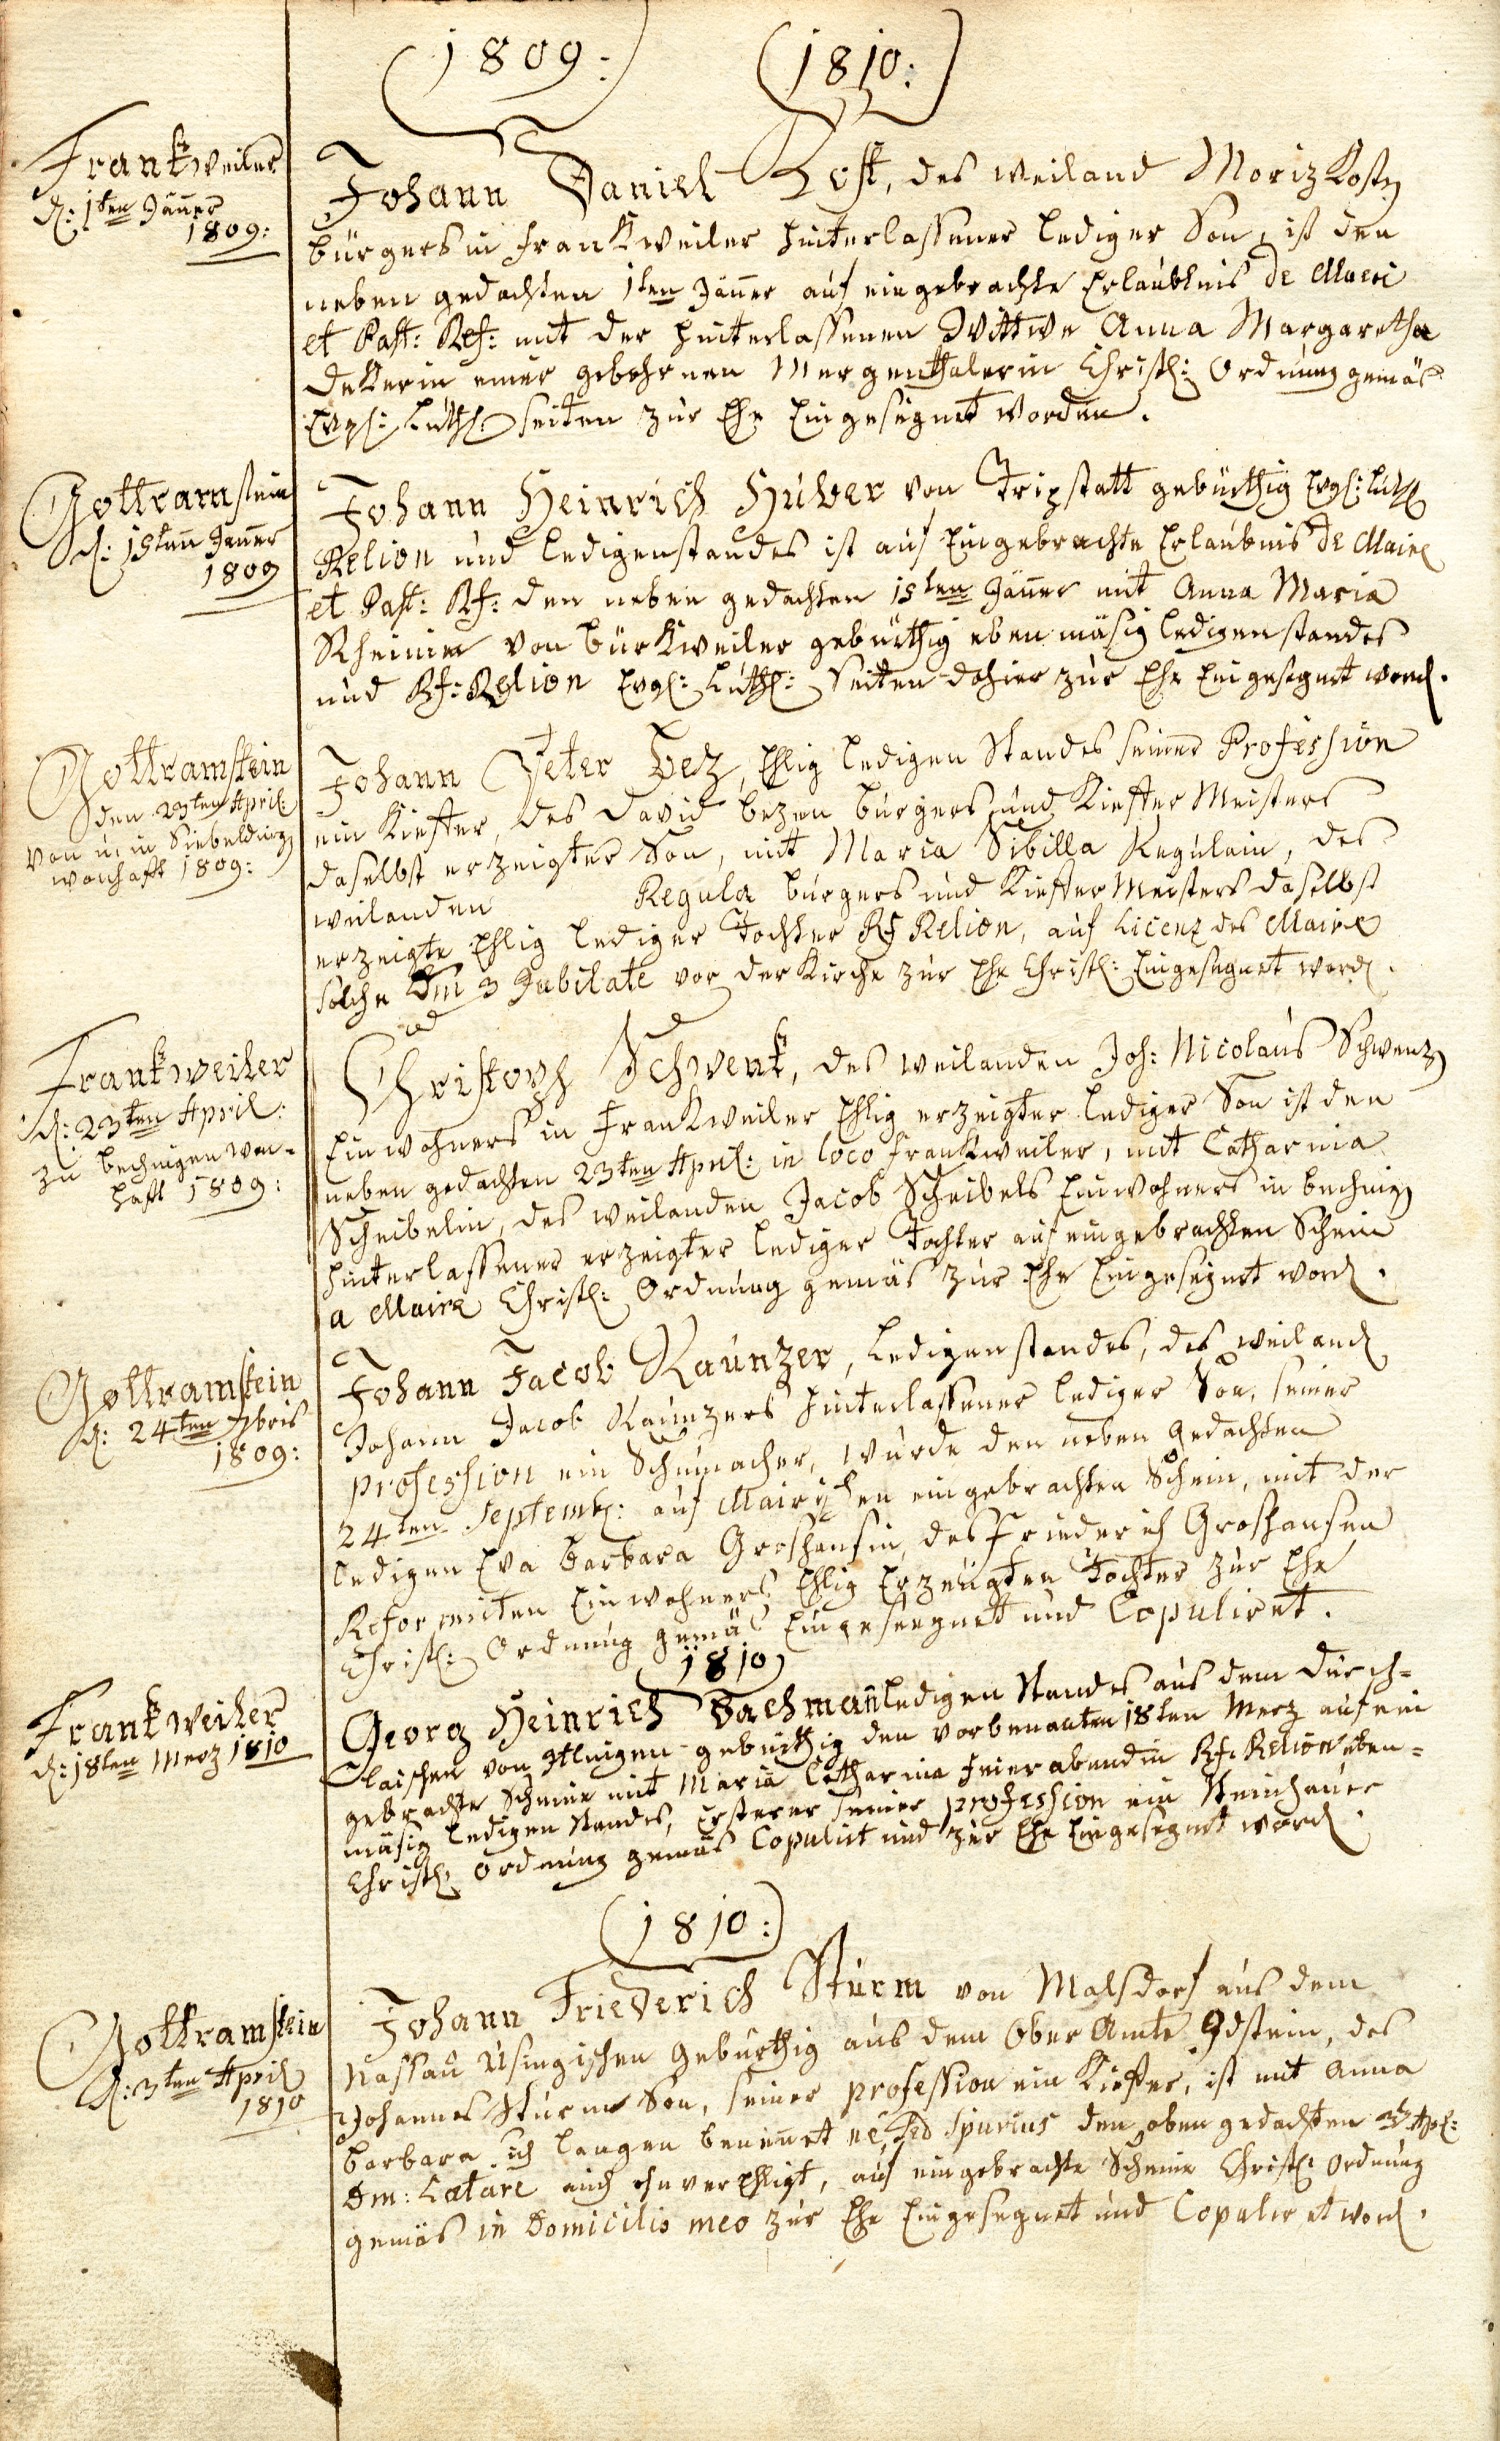 1809:
1810:
Frankweiler
d: 1ten Jäner
1809:
Johann Daniel Kost, des weiland Moriz Kosten
bürgers in Frankweiler hinterlassener lediger Son, ist den
neben gedachten 1ten Jäner auf eingebrachte Erlaubtnis de Maeri
et Past: Ref: mit der hinterlassenen Wittwe Anna Margaretha
Dekerin einer gebohrnen Mergenthalerin Christl: Ordnung gemäs
Evgl: Luth: seiten zur Ehe Eingesegnet worden.
Gottramstein
d: 15ten Jener
1809
Johann Heinrich Huber von Tripstatt gebürthig Evgl: Luth
Relion und ledigenstandes ist auf Eingebrachte Erlaubnis de Maire
et Past: Rf: den neben gedachten 15ten Jäner mit Anna Maria
von bürkweiler gebürthig ebenmäsig ledigenstandes
und Rf: Relion Evgl: Luth: Seiten dahier zur Ehe Eingesegnet word.
Gottramstein
den 23ten April:
von u. in Siebeldingen
wonhafft 1809:
Johann Peter Bez, Ehlig ledigen Standes seiner Profession
ein Kieffer, des David bezen bürgers und Kieffer Meisters
daselbst erzeigter Son, mit Maria Sibilla Regulain, des
weilanden Regula bürgers und Kieffer Meisters daselbst
erzeigte Ehlig lediger Tochter Rf Relion, auf Licenz des Maire
solche Dm 3 Jubilate vor der Kirche zur Ehe Christl: Eingesegnet word.
Frankweiler
d: 23ten April:
zu bechingen won-
hafft 1809:
Christoph Schwenk, des weilanden Joh: Nicolaus Schwenz
Einwohners in Frankweiler Ehlig erzeigter lediger Son ist den
neben gedachten 23ten April: in loco Frankweiler, mit Catharina
Scheibelin, des weilanden Jacob Scheibels Einwohners in beching
hinterlassener erzeigter lediger Tochter auf eingebrachten Schein
a Maire Christl: Ordnung gemäs zur Ehe Eingesegnet word.
Gottramstein
d: 24ten 7bris
1809:
Johann Jacob Kaunzer, ledigenstandes, des weiland
Johann Jacob Kaunzers hinterlassener lediger Son, seiner
profession ein Schumacher, wurde den neben gedachten
24ten Septemb: auf eingebrachten Schein, mit der
ledigen Eva Barbara Groshansin, des Friederich Groshansen
Reformirten Einwohners Ehlig Erzeugten Tochter zur Ehe
Christl: Ordnung gemäs Eingeseegnett und Copuliret.
1810
Frankweiler
d: 18ten Merz 1810
Georg Heinrich Bachmañ ledigen Standes aus dem Durch-
von gebürthig den vorbenanten 18ten Merz auf ein
gebrachte Scheine mit Maria Catharina Feierabendin Rf: Relion eben-
mäsig ledigen Standes, Ersterer seiner profession ein Steinhauer
Christl: Ordnung gemäs Copulirt und zur Ehe Eingesegnet word.
1810:
Gottramstein
d: 3ten April
1810
Johann Friederich Sturm von Malsdorf aus dem
Nassau Usingischen Gebürthig aus dem Ober Amte Idstein, des
Johannes Sturms Son, seiner profession ein Kieffer, ist mit Anna
Barbara sich Langen beneñet Spurius den oben gedachten Apl:
Dm: Lætare auch verehligt, auf eingebrachte Scheine Christl: Ordnung
gemäs in Domicilio meo zur Ehe Eingesegnet und Copuliret word.